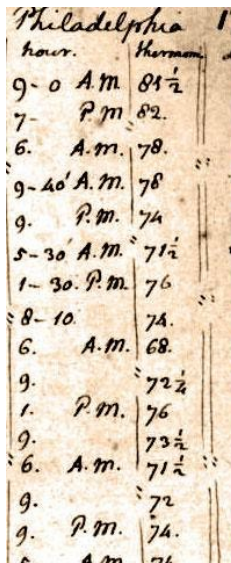 Philadelphia 1
hour. thermom.
9-0 A.M 81 1/2
7- P M 82.
6. A.M. 78.
9-40' A.M. 78
9. P.M. 74
5-30' A.M. 71 1/2
1-30. P.M. 76
8-10. 74.
6. A.M. 68.
9. 72 1/4
1. P.M. 76
9. 73 1/2
6. A.M. 71 1/2
9. 72
9. P.M. 74.